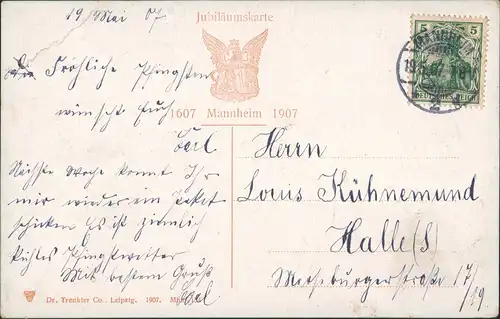 Jubiläumskarte
19 Mai 07
Fröhliche Pfingsten
wünscht Euch
Carl
1607 Mannheim 1907
Nächste Woche könnt Ihr
mir wieder ein Paket
schicken Es ist ziemlich
kühles Pfingstwetter
Mit bestem Gruß
Carl
5 5
DEUTSCHES REICH
Herrn
Louis Kühnemund
Halle (S)
Merseburgerstraße 17/
19
Dr. Trenkler Co., Leipzig. 1907.